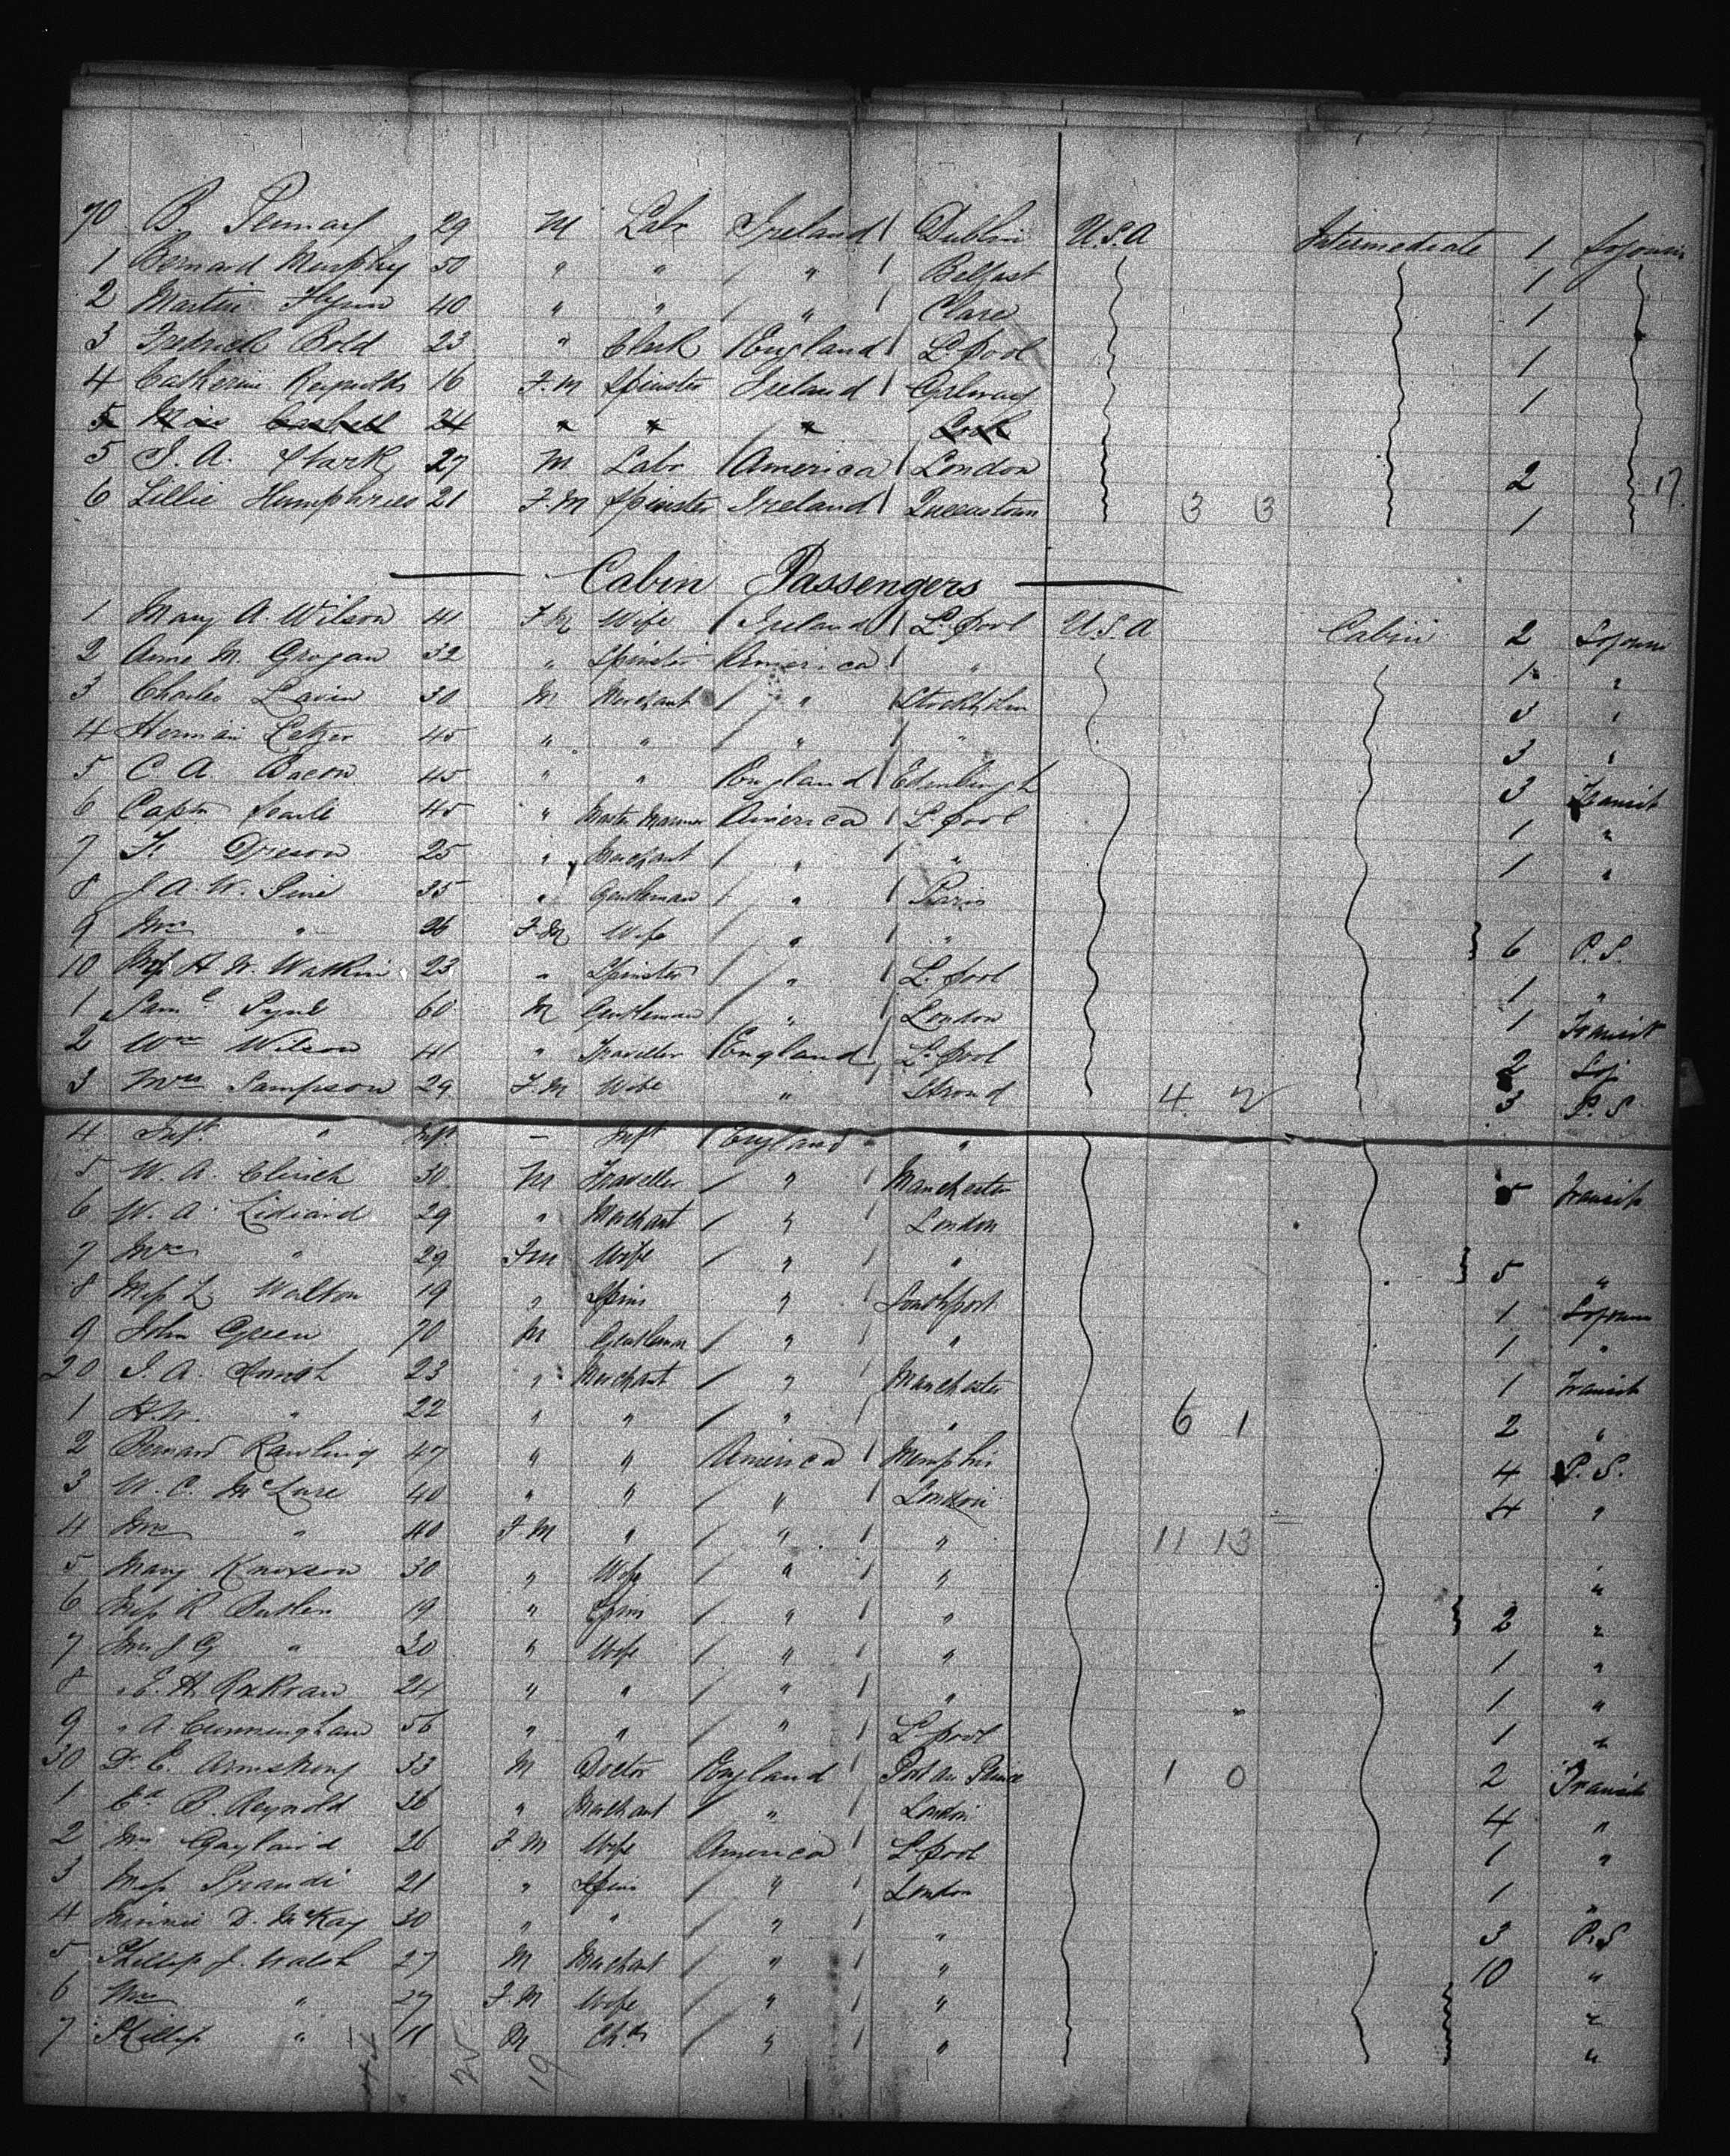 70 B. 29 M Labr Ireland Dublin U.S.A Intermediate 1 Sojourn
1 Bernard Murphy 50 " " " Belfast 1
2 Martin Flynn 40 " " " Clare 1
3 Fredrick Bold 23 " Clerk England L'pool 1
4 Catherine Reynolds 16 F.M Spinster Ireland Galway 1
5 Miss 24 " " " Cork
5 J. A. Stark 27 M Labr America London 2 17
6 Lillie Humphries 21 F.M Spinster Ireland Queenstown 3 3 1
Cabin Passengers
1 Mary A. Wilson 41 F.M Wife Ireland L'pool U.S.A Cabin 2 Sojourn
2 Anne M. Grogan 32 " Spinster America " 1 "
3 Charles Lavin 30 M Merchant " Stockholm 3 "
4 Herman 45 " " " " 3 "
5 C. A. Bacon 45 " " England Edinburgh 3 Transit
6 Captn Searle 45 " Master Mariner America L'pool 1 "
7 25 " Merchant " " 1 "
8 J. A. W. 35 " Gentleman " Paris
9 Mrs " 26 F.M Wife " " 6 P.S.
10 Miss H. W. Watkin 23 " Spinster " L'pool 1 "
1 Saml 60 M Gentleman " London 1 Transit
2 Wm Wilson 41 " Traveller England L'pool 2 Soj
3 Mrs Sampson 29 F.M Wife " Stroud 4 2 3 P.S
4 Inft " Inft - Inft England " "
5 W. A. Clinch 30 M Traveller " Manchester 5 Transit
6 W. A. Lidiard 29 " Merchant " London
7 Mrs " 29 FM Wife " " 5 "
8 Miss L. Walton 19 " Spins " Southport 1 Sojourn
9 John Green 70 M Gentleman " " 1 "
20 J. A. 23 " Merchant " Manchester 1 Transit
1 H.W. " 22 " " " " 6 1 2 "
2 Bernard Rawling 47 " " America Memphis 4 P.S.
3 W. C. McLure 40 " " " London 4 "
4 Mrs " 40 F.M " " " 11 13
5 Mary 30 " Wife " " "
6 Miss R. Butler 19 " Spins " " 2 "
7 Mrs J G " 30 " Wife " " 1 "
8 " E. H. 24 " " " " 1 "
9 " A. Cunningham 56 " " " L'pool 1 "
30 Dr. E. Armstrong 33 M Doctor England Port au Prince 1 0 2 Transit
1 Ed. B. Reynold 36 " Merchant " London 4 "
2 Mrs Gaylaird 26 F.M Wife America L'pool 1 "
3 Miss 21 " Spins " London 1 "
4 Minnie D. McKay 30 " " " " 3 P.S
5 Phillip J. Walsh 27 M Merchant " " 10 "
6 Mrs " 27 F.M Wife " " "
7 Phillip " 11 M Chd " " "
19